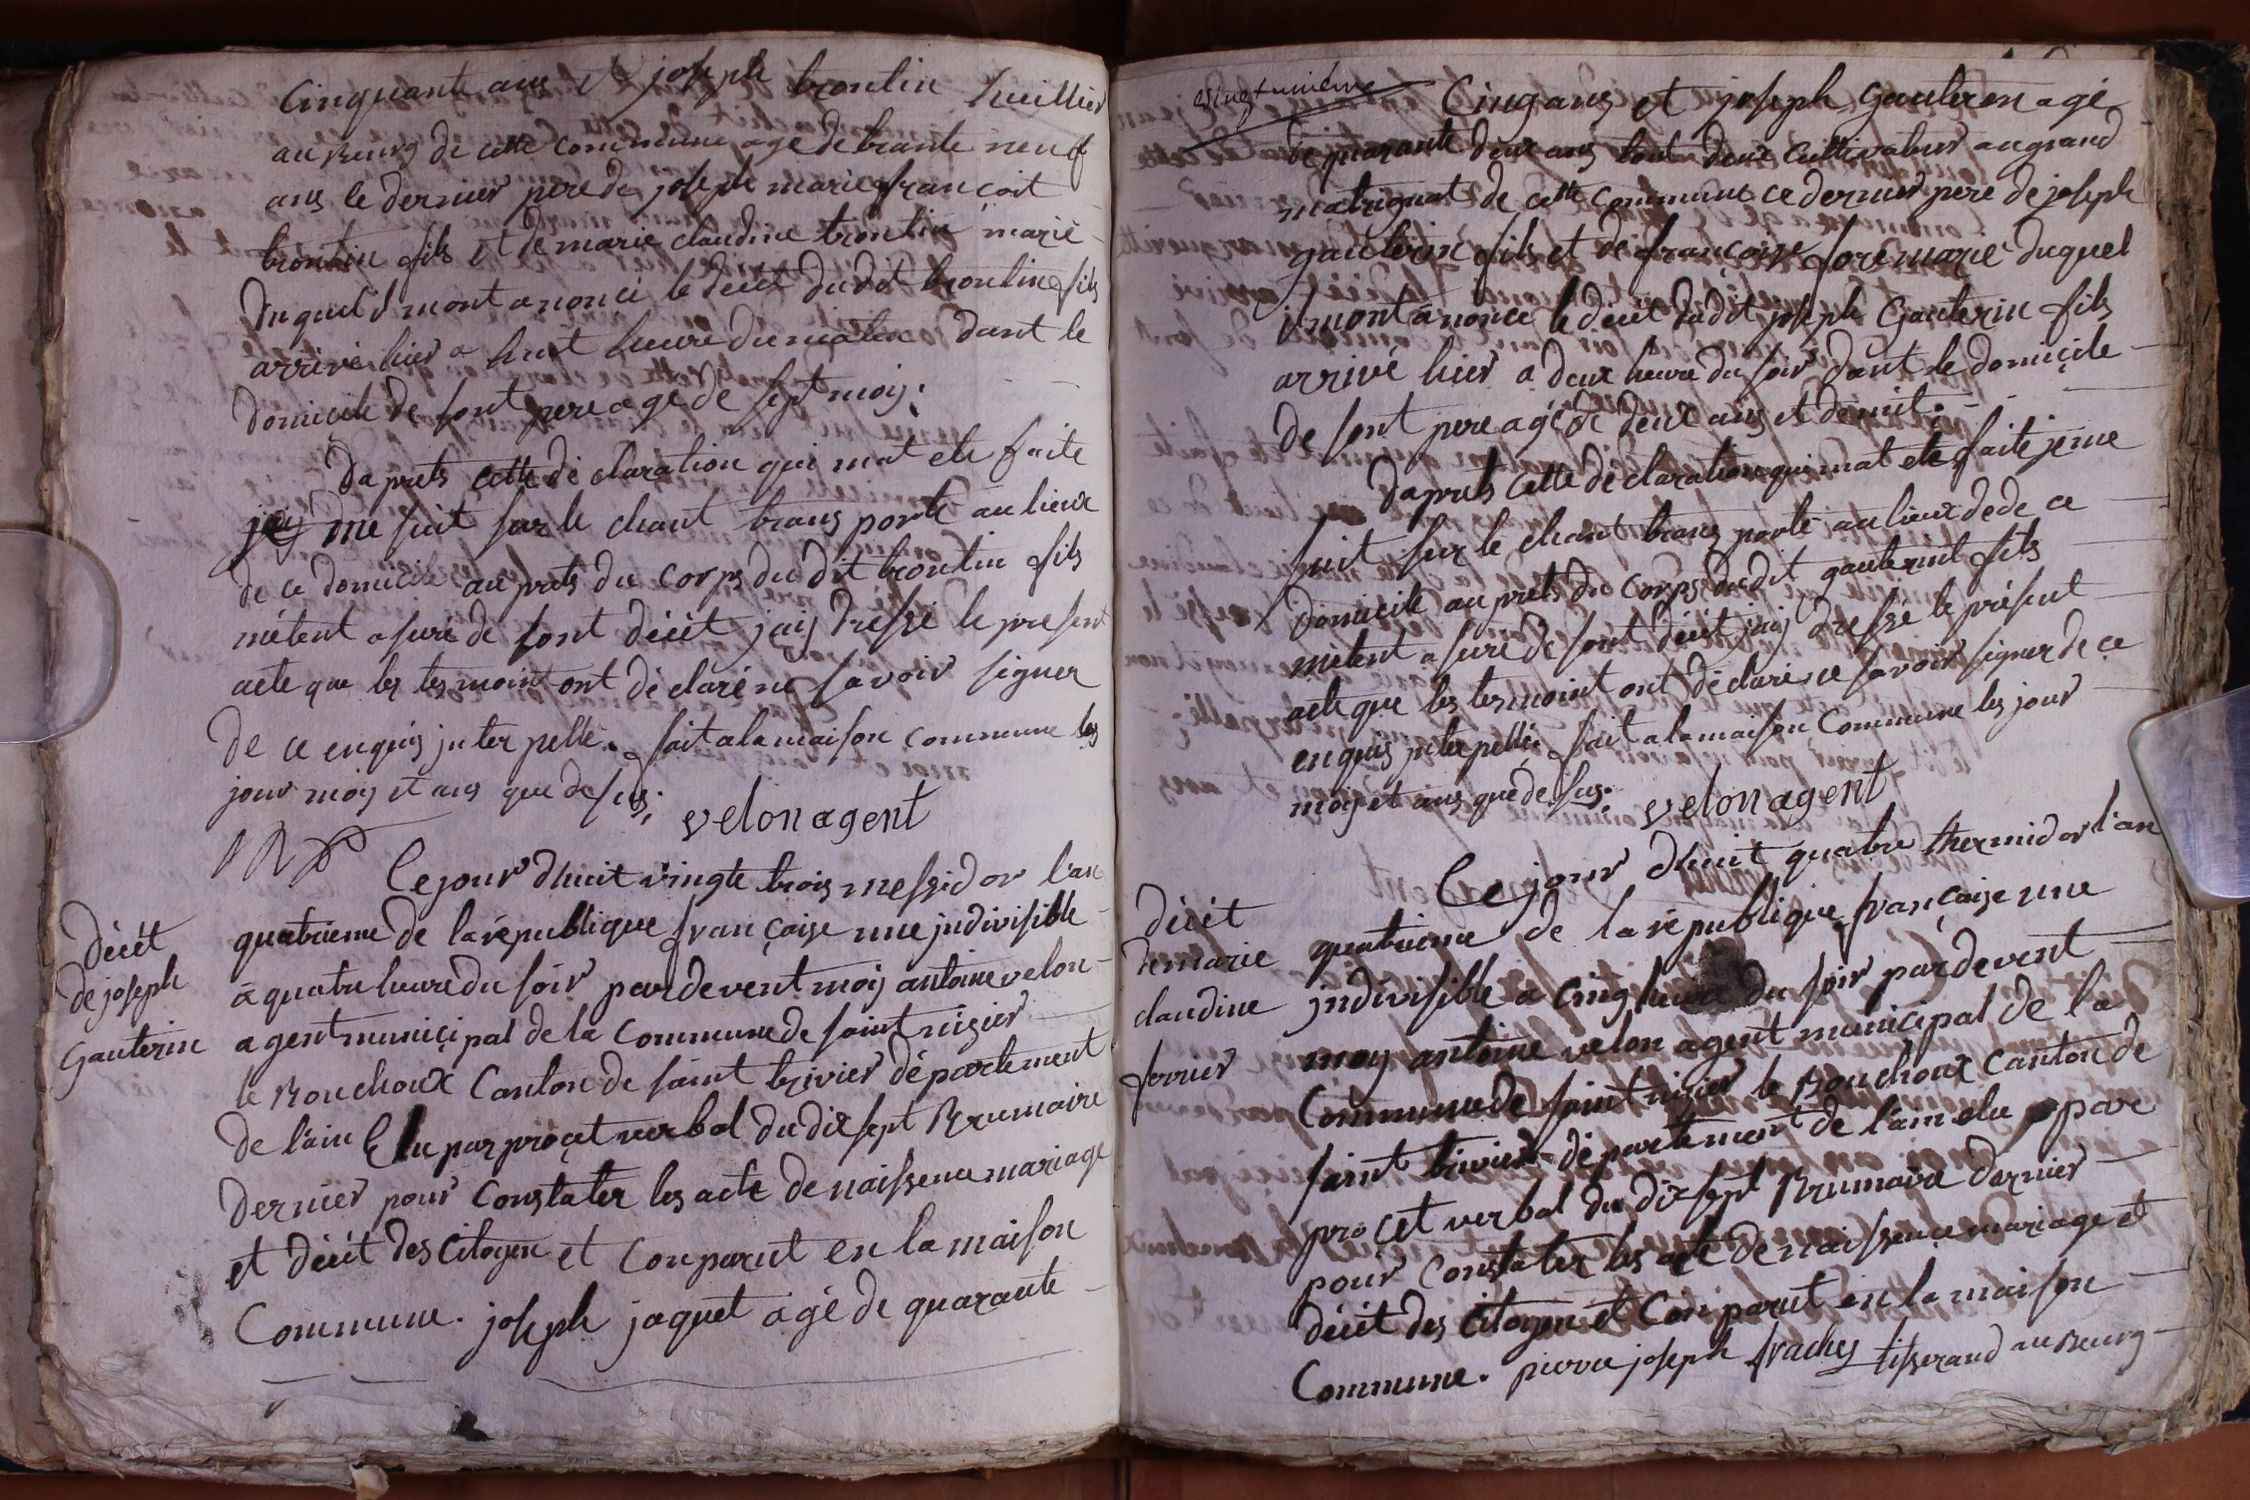 Cinquante ans et joseph trontin huillier
au Bourg de cette commune age de trante neuf
ans le dernier pere de joseph marie francoit
trontin fils et de marie claudine trontin marié
Duquel il mont anoncé le decet dudit trontin fils
arrivé hier a huit heure du matin dant le
Domicile de sont pere age de sept mois.
Daprets cette déclaration qui mat ete faite
jais me suit sur le chant transporté au lieux
de ce domicile au prets du corps du dit trontin fils
métent asuré de sont décèt jais Dressé le present
acte que les tesmoint ont déclaré ne savoir signer
de ce enquis jnterpellé. fait a la maison commune les
jour mois et ans que desus;
velon agent
Décét
de joseph
Gauterin
Cejour dhuit vingte trois messidor l'an
quatrieme de la république françoise une jndivisible
a quatre heure du soir pardevent moy antoine velon
agent municipal de la Commune de saint nizier
le Bouchoux Canton de saint trivier département
de l'ain Elu par procet verbal du dix sept Brumaire
Dernier pour Constater les acte de naissence mariage
et décét des Citoyen et Comparut en la maison
Commune. joseph jaquet agé de quarante
vingt unième
Cinq ans et joseph Gauteron agé
de quarante deux ans tout deux cultivateur au grand
matrignat de cette commune ce dernier pere de joseph
gauterin fils et de françoise foré marié duquel
il mont anoncé le décét dudit joseph Gauterin fils
arrivé hier a deux heure du soir dant le domicile
de sont pere agé de deux ans et demit.
Daprets cette déclaration qui mat ete faite je me
suit sur le chant trans porté au lieux de de ce
Domicile au prets du Corps du dit gauterint fils
métent asuré de sont décét jais dressé le présent
acte que les termoint ont déclaré ne savoir signer de ce
enquis jnterpellé fait a la maison Commune les jour
mois et ans que desus.
velon agent
décét
de marie
claudine
ferrier
Ce jour dhuit quatre thermidor l'an
quatrieme de la république françoise une
jndivisible a cinq heure du soir pardevent
moy antoine velon agent municipal de la
Commune de saint nizier le Bouchoux Canton de
saint trivier département de l'ain elu par
procet verbal du dix sept Brumaire dernier
pour Constater les acte de naissence mariage et
décét des Citoyen et Comparut en la maison
Commune. pierre joseph fraches tisserand au Bourg